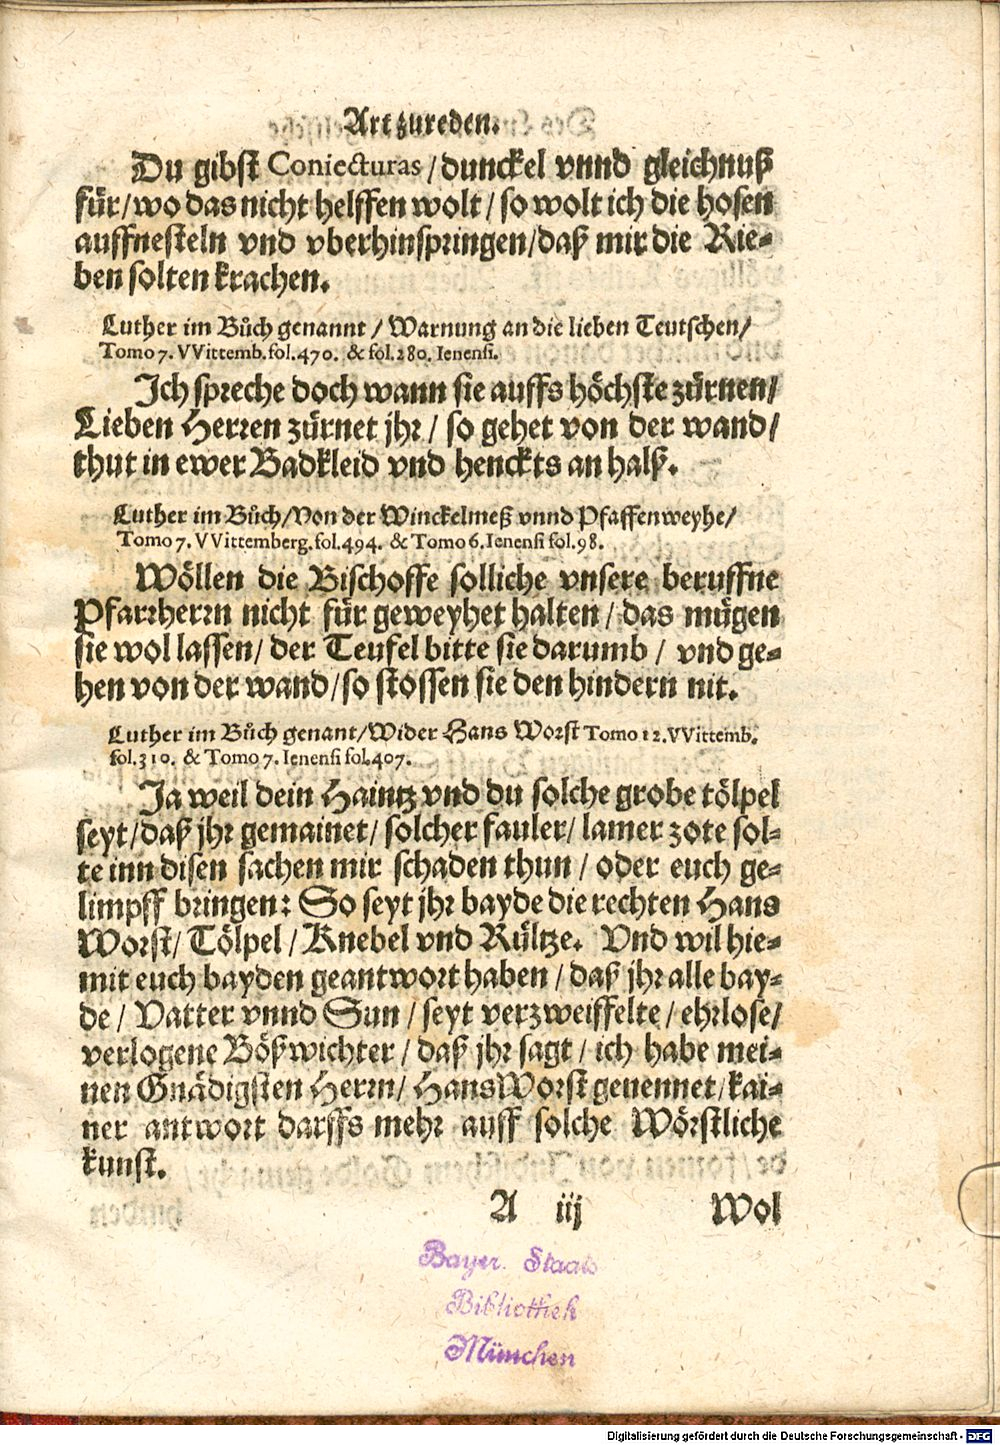 Art zureden.
Du gibst Coniecturas / dunckel vnnd gleichnuß
für / wo das nicht helffen wolt / so wolt ich die hosen
auffnesteln vnd vberhinspringen / daß mir die Rie-
ben solten krachen.
Luther im Bůch genannt / Warnung an die lieben Teutschen /
Tomo 7. VVittemb. fol. 470. & fol. 280. Ienensi.
Ich spreche doch wann sie auffs höchste zürnen /
Lieben Herren zürnet jhr / so gehet von der wand /
thut in ewer Badkleid vnd henckts an halß.
Luther im Bůch / Von der Winckelmeß vnnd Pfaffenweyhe /
Tomo 7. VVittemberg. fol. 494. & Tomo 6. Ienensi fol. 98.
Wöllen die Bischoffe solliche vnsere beruffne
Pfarrherrn nicht für geweyhet halten / das mügen
sie wol lassen / der Teufel bitte sie darumb / vnd ge-
hen von der wand / so stossen sie den hindern nit.
Luther im Bůch genant / Wider Hans Worst Tomo 12. VVittemb.
fol. 310. & Tomo 7. Ienensi fol. 407.
Ja weil dein Haintz vnd du solche grobe tölpel
seyt / daß jhr gemainet / solcher fauler / lamer zote sol-
te inn disen sachen mir schaden thun / oder euch ge-
limpff bringen: So seyt jhr bayde die rechten Hans
Worst / Tölpel / Knebel vnd Rültze. Vnd wil hie-
mit euch bayden geantwort haben / daß jhr alle bay-
de / Vatter vnnd Sun / seyt verzweiffelte / ehrlose /
verlogene Bößwichter / daß jhr sagt / ich habe mei-
nen Gnädigsten Herrn / Hans Worst genennet / kai-
ner antwort darffs mehr auff solche Wörstliche
kunst.
A iij Wol
Bayer. Staats
Bibliothek
München
Digitalisierung gefördert durch die Deutsche Forschungsgemeinschaft - DFG